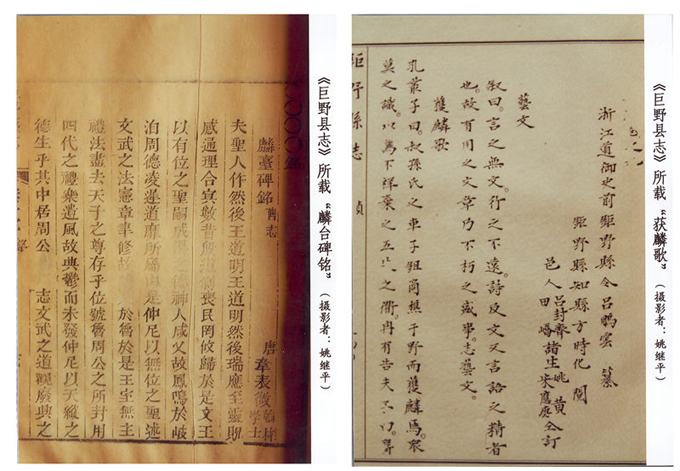 《巨野县志》所载“获麟歌”
（摄影者：姚继平）
浙江道御史前鉅野縣令呂鵬雲 纂
鉅野縣知縣方時化 閱
邑人 呂封齊 姚 黃
田 諸生 宋應庚仝訂
藝文
叙曰言之無文行之不遠詩反文又言語之精者
也故有用之文章乃不朽之盛事志藝文
獲麟歌
孔叢子曰叔孫氏之車子鉏商樵于野而獲麟焉眾
莫之識以為不祥棄之五父之衢冉有告夫子曰
鉅野縣志 貞
《巨野县志》所载“麟台碑铭”
（摄影者：姚继平）
麟臺碑銘 舊志
唐 韋表微 翰林學士
夫聖人作然後王道明王道明然後瑞應至靈貺
感通理合冥數昔殷 喪民罔攸歸於是文王
以有位之聖嗣成 德神人咸乂故鳳鳴於岐
洎周德凌遲道靡所 是仲尼以無位之聖述
文武之法憲章聿修故 於魯於是王室無主
禮法盡去天子之尊存乎位號魯周公之所封用
四代之禮樂遺風故典鬱而未發仲尼以天縱之
德生乎其中居周公 志文武之道 廣典之